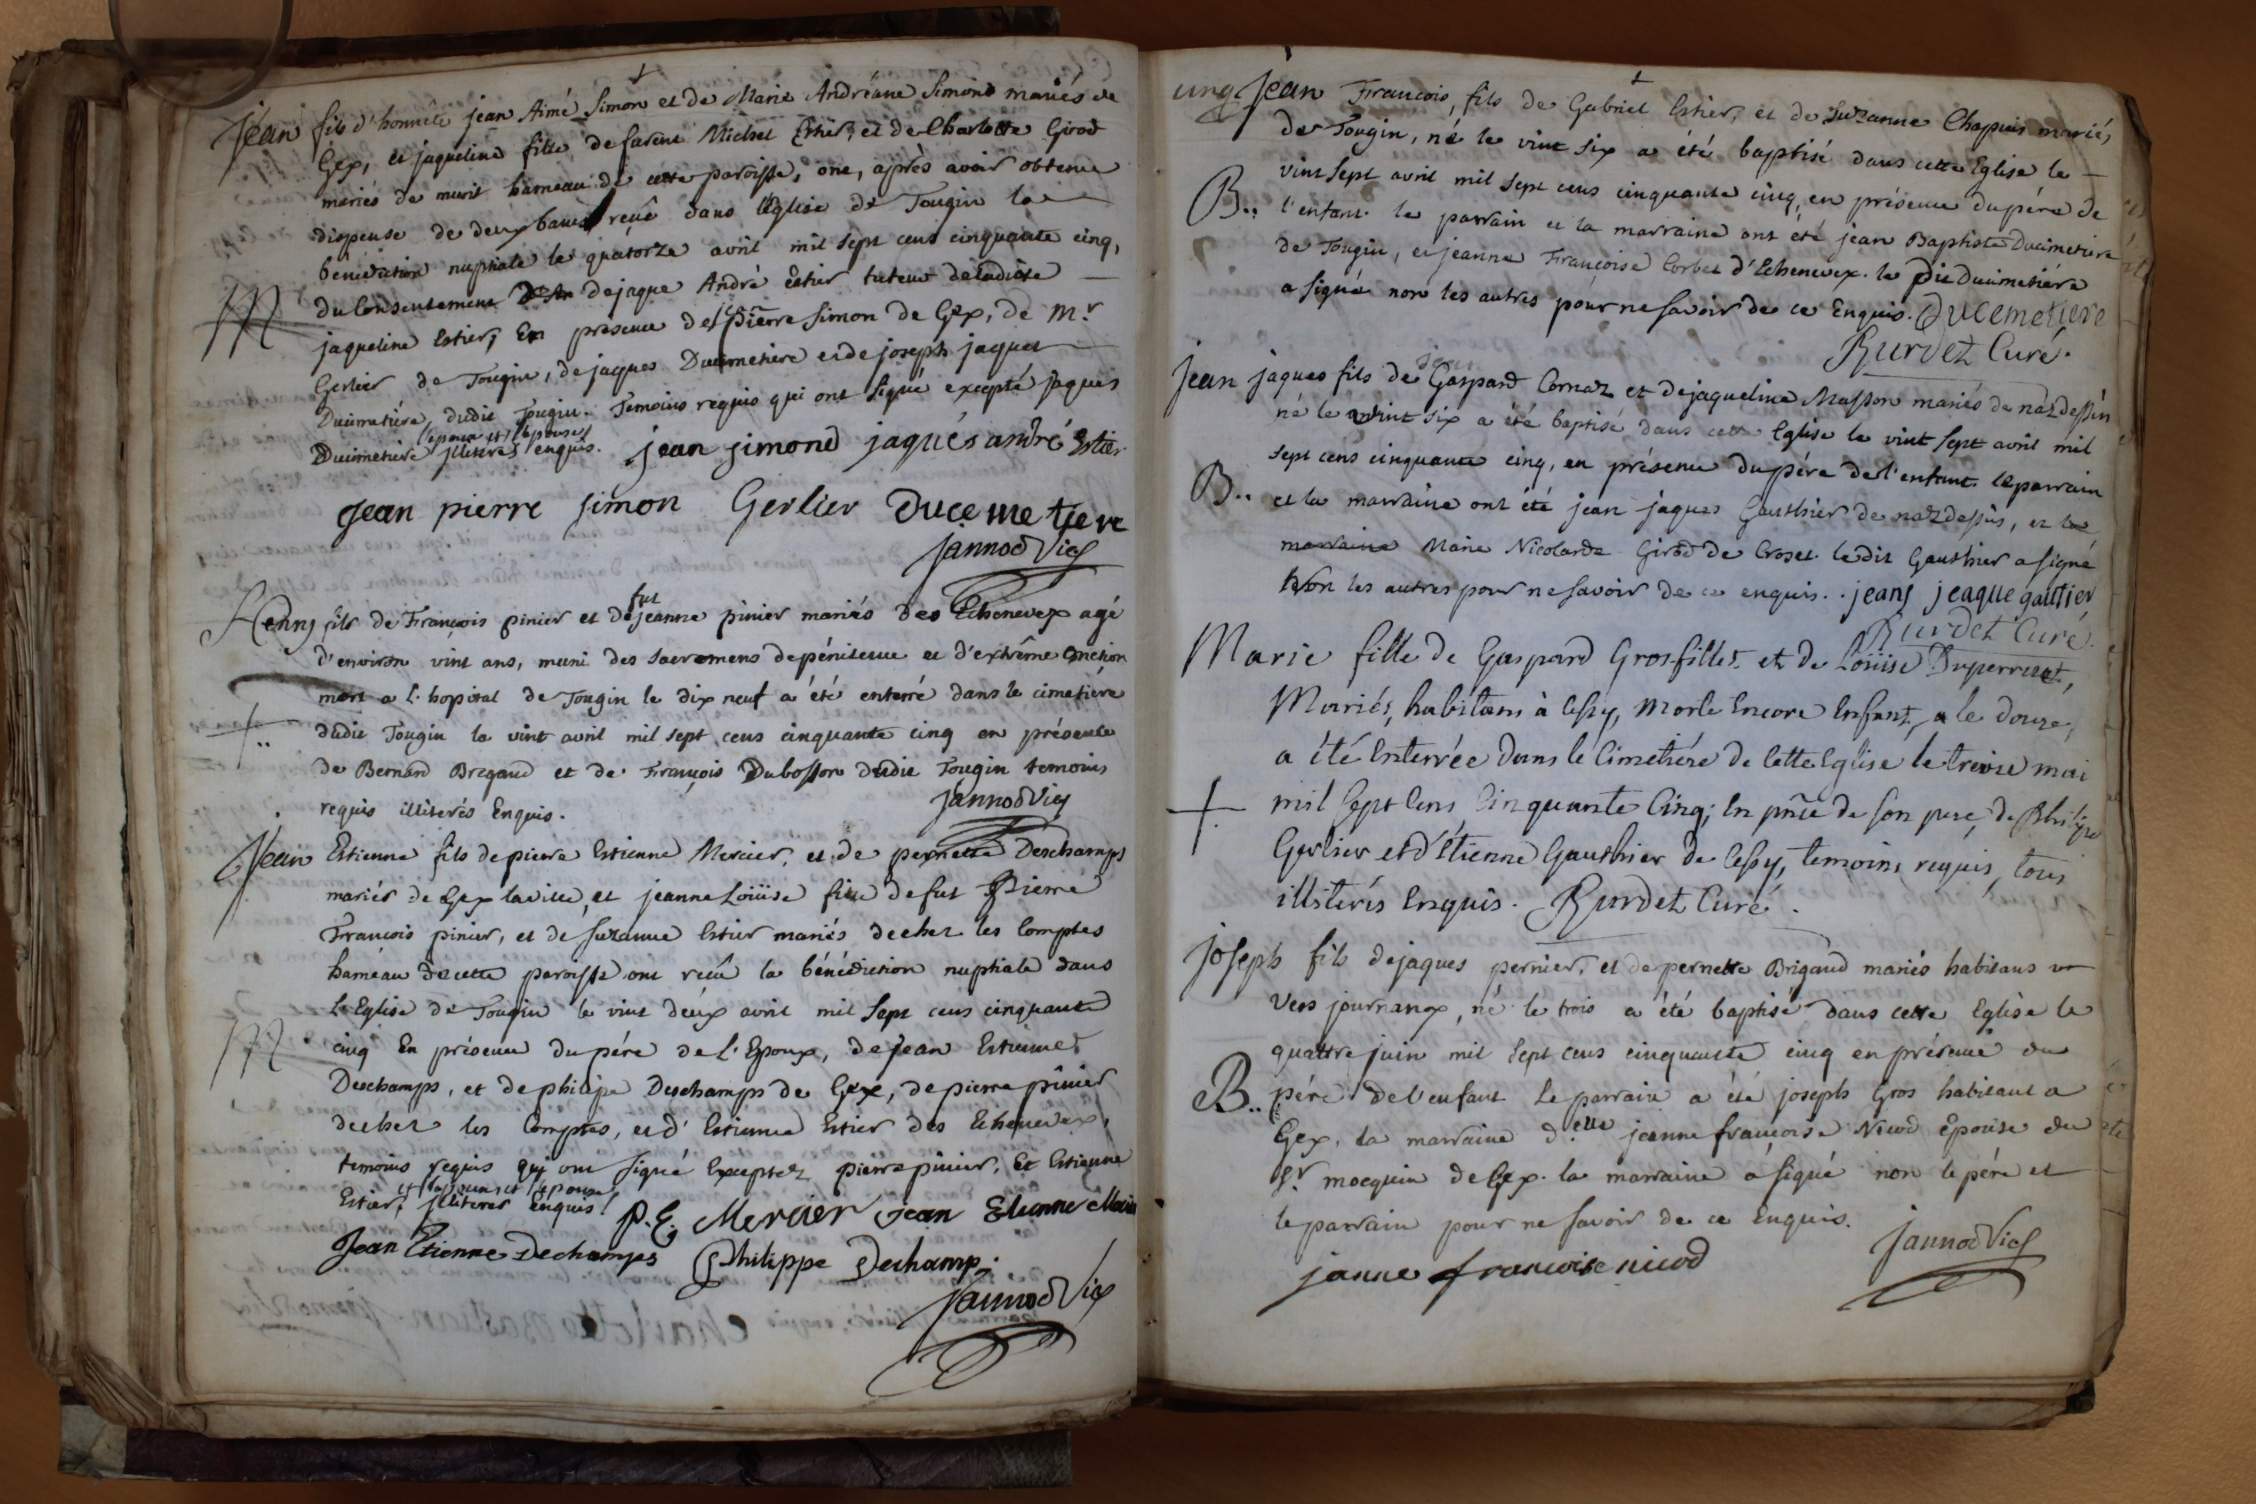 Jean fils d'honnête jean Aimé Simon et de Marie Andréane Simond mariés de
Gex, et jaqueline fille de Michel Estier, et de Charlotte Girod
mariés de hameau de cette paroisse, ont, après avoir obtenu
dispense de deux bancs reçû dans l'Eglise de Tougin la
bénédiction nuptiale le quatorze avril mil sept cens cinquante cinq,
M
du Consentement de jaque André Estier tuteur de ladiste
jaqueline Estier, En presence de Pierre Simon de Gex, de Mr
Gerlier de Tougin, de jaques Ducimetière et de joseph jaquet
Ducimetière dudit Tougin. Temoins requis qui ont signé excepté jaques
l'epoux et l'epouse
Ducimetière illiterés enquis. jean simond jaqués andré Estier
jean pierre simon Gerlier Ducemetiere
Jannod Vic
Henry fils de François pinier et de fut jeanne pinier mariés des Echenevex agé
d'environ vint ans, muni des sacremens de pénitence et d'extrême onction
mort a l'hopital de Tougin le dix neuf a été enterré dans le cimetiére
dudit Tougin le vint avril mil sept cens cinquante cinq en présence
de Bernard Bregand et de François Dubosson dudit Tougin temoins
requis illiterés Enquis. Jannod Vic
Jean Estienne fils de pierre Estienne Mercier, et de pernette Deschamps
mariés de Gex la ville, et jeanne Loüise fille de fut Pierre
François pinier, et de suzanne Estier mariés de chez les Comptes
hameau de cette paroisse ont reçu la bénédiction nuptiale dans
l'Eglise de Tougin le vint deux avril mil sept cens cinquante
M
cinq En présence du pére de l'Epoux, de jean Estienne
Deschamps, et de philipe Deschamps de Gex, de pierre pinier
de chez les Comptes, et d'Estienne Estier des Echenevex,
temoins requis qui ont signé Exceptez pierre pinier, Et Estienne
et l'epoux et l'epouse
Estier, illiterés enquis. P. E. Mercier Jean Etienne
Jean Etienne Dechamps Philippe Dechamp
Jannod Vic
cinq Jean François, fils de Gabriel Estier, et de Suzanne Chapuis mariés
de Tougin, né le vint six a été baptisé dans cette Eglise le
vint sept avril mil sept cens cinquante cinq, en présence du pére de
B.. l'enfant. le parrain et la marraine ont été jean Baptiste Ducimetiere
de Tougin, et jeanne Françoise Corbet d'Echenevex. le dit Ducimetiére
a signé non les autres pour ne savoir de ce Enquis. Ducemetiere
Burdet Curé.
Jean jaques fils de jean Gaspard Cornaz et de jaqueline Masson mariés de nazdessus
né le vint six a été baptisé dans cette Eglise le vint sept avril mil
sept cens cinquante cinq, en présence du pére de l'enfant. le parrain
B.. et la marraine ont été jean jaques Gauthier de nazdessus, et la
marraine Marie Nicolarde Girod de Croset. le dit Gauthier a signé
Non les autres pour ne savoir de ce enquis. jeans jeaque gautier
Burdet Curé.
Marie fille de Gaspard Grosfillet et de Loüise Duperrut,
Mariés, habitans à Cessy, morte Encore Enfant, le douze,
a été Enterrée dans le Cimetiére de Cette Eglise le treize mai
mil sept Cens Cinquante Cinq; En pñce de son pere, de Philipe
Gerlier et d'Etienne Gauthier de Cessy, temoins requis, tous
illiterés Enquis. Burdet Curé.
Joseph fils de jaques pernier, et de pernette Brigand mariés habitans
vers journanx, né le trois a été baptisé dans cette Eglise le
quattre juin mil sept cens cinquante cinq en présence du
B.. pére de l'enfant Le parrain a été joseph Gros habitant a
Gex, la marraine delle jeanne françoise Nicod Epouse du
Sr mocquin de Gex. la marraine a signé non le pére et
le parrain pour ne savoir de ce Enquis. Jannod Vic
janne francoise nicod